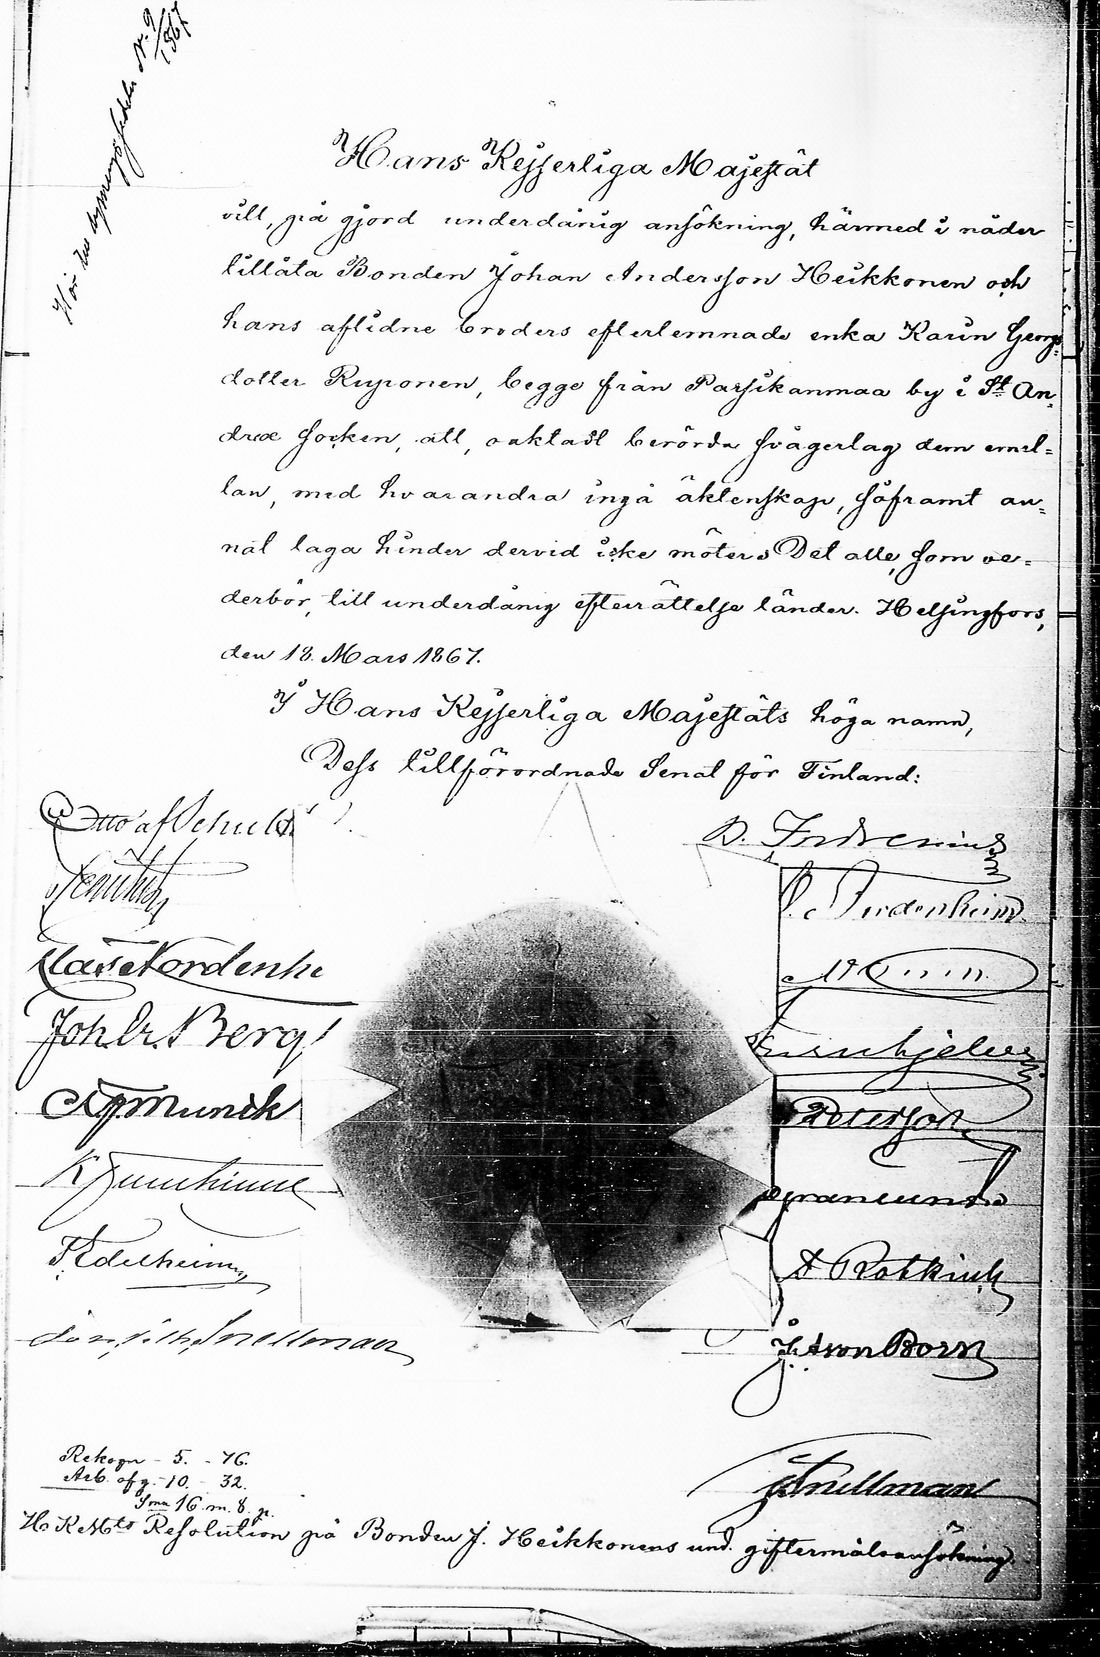 N. 9
1867
Hans Kejserliga Majestät
vill, på gjord underdånig ansökning, härmed i nåder
tillåta Bonden Johan Andersson Heikkonen och
hans aflidne broders efterlemnade enka Karin Georgs=
dotter Ruponen, begge från Parsikanmaa by i St An=
dreæ Socken, att, oaktadt berörda svågerlag dem emel=
lan, med hvarandra ingå äktenskap, såframt an=
nat laga hinder dervid icke möter. Det alle, som ve=
derbör, till underdånig efterrättelse länder. Helsingfors,
den 18. Mars 1867.
I Hans Kejserliga Majestäts höga namn,
Dess tillförordnade Senat för Finland:
Otto af Schultén
Clas Nordenhe
Joh. Gr. Berg
Munck
F. Edelheim
Snellman
Peterson
Granlund
A Rotkirch
V. M. von Born
Snellman
Rekogn - 5. - 76.
Arb. afg. - 10. - 32.
Sma 16 m. 8. p.
H K Mts Resolution på Bonden J. Heikkonens und. giftermålsansökning.